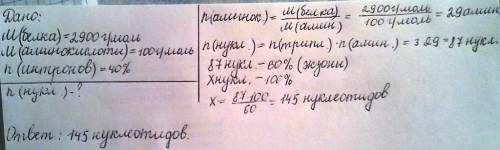 Дано:
M(белка)=2900г/моль
M(аминокислоты)=100г/моль
n(интронов)=40%
n(нукл.)-?
n(аминок.)= M(белка)/M(амин.) = 2900г/моль/100г/моль = 29амин.
n(нукл.)=n(трипл.)·n(амин.)= 3·29=87 нукл.
87 нукл.-60% (экзоны)
Xнукл.-100%
X= 87·100/60 = 145 нуклеотидов
Ответ: 145 нуклеотидов.